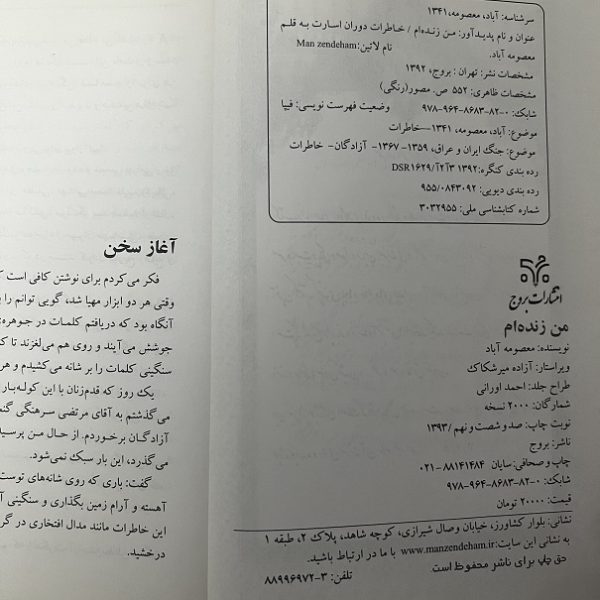 سرشناسه: آباد، معصومه،۱۳۴۱
عنوان و نام پدیدآور: من زنده‌ام / خاطرات دوران اسارت به قلم
معصومه آباد.
نام لاتین:Man zendeham
مشخصات نشر: تهران : بروج، ۱۳۹۲
مشخصات ظاهری: ۵۵۲ ص. مصور(رنگی)
شابک: ۰-۸۲-۸۶۸۳-۹۶۴-۹۷۸
وضعیت فهرست نویسی: فیپا
موضوع: آباد، معصومه، ۱۳۴۱—خاطرات
موضوع: جنگ ایران و عراق، ۱۳۵۹-۱۳۶۷- آزادگان- خاطرات
رده بندی کنگره: ۱۳۹۲ ۳آ۲آ/DSR۱۶۲۹
رده بندی دیویی: ۹۵۵/۰۸۴۳۰۹۲
شماره کتابشناسی ملی: ۳۰۳۲۹۵۵
انتشارات بروج
من زنده‌ام
نویسنده: معصومه آباد
ویراستار: آزاده میرشکاک
طراح جلد: احمد اورانی
شمارگان: ۲۰۰۰ نسخه
نوبت چاپ: صد و شصت و نهم /۱۳۹۳
ناشر: بروج
چاپ و صحافی: سایان ۸۸۱۴۱۴۸۴-۰۲۱
شابک: ۰-۸۲-۸۶۸۳-۹۶۴-۹۷۸
قیمت: ۲۰۰۰۰ تومان
نشانی: بلوار کشاورز، خیابان وصال شیرازی، کوچه شاهد، پلاک ۲، طبقه ۱
به نشانی این سایت:www.manzendeham.ir با ما در ارتباط باشید.
حق چاپ برای ناشر محفوظ است.
تلفن: ۳-۸۸۹۹۶۹۷۲
آغاز سخن
فکر می‌کردم برای نوشتن کافی است ک
وقتی هر دو ابزار مهیا شد، گویی توانم را
آنگاه بود که دریافتم کلمات در جوهره:
جوشش می‌آیند و روی هم می‌لغزند تا ک
سنگینی کلمات را بر شانه می‌کشیدم و هر
یک روز که قدم‌زنان با این کوله‌بار
می‌گذشتم به آقای مرتضی سرهنگی گنه
آزادگان برخوردم. از حال من پرسید
می‌گذرد، این بار سبک نمی‌شود.
گفت: باری که روی شانه‌های توست
آهسته و آرام زمین بگذاری و سنگینی آ
این خاطرات مانند مدال افتخاری در گر
درخشید.